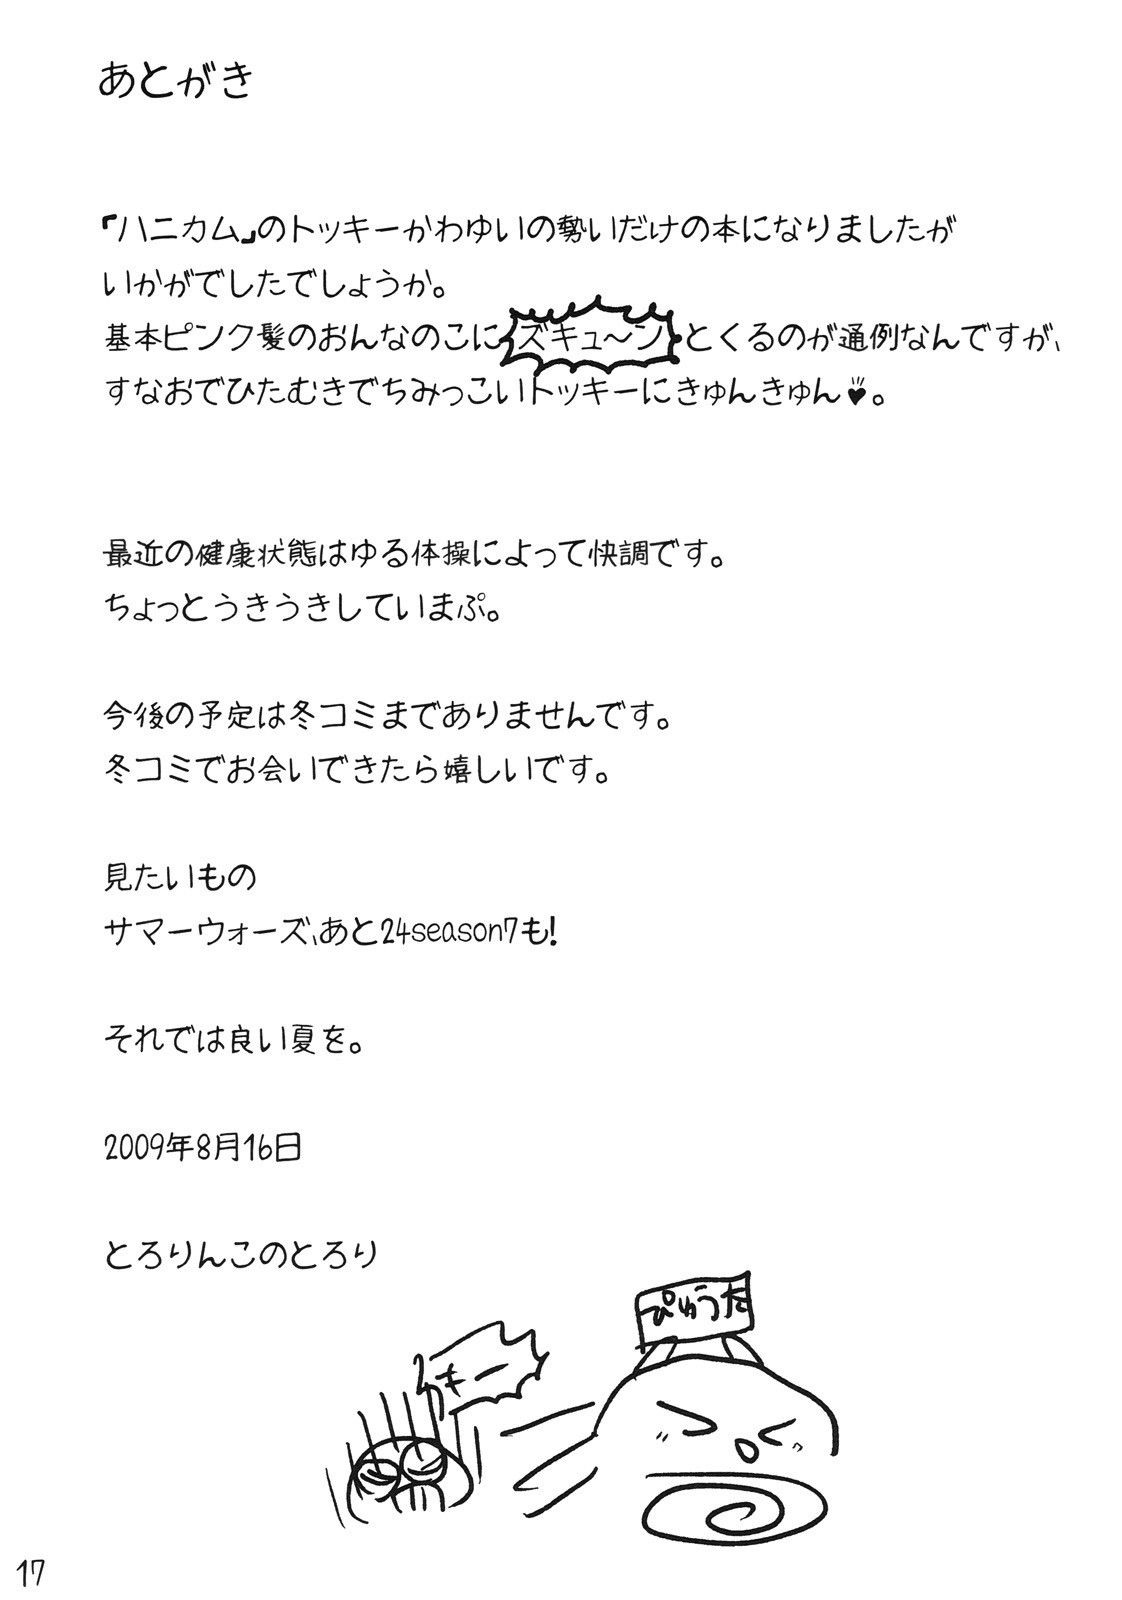 あとがき
『ハニカム』のトッキーかわゆいの勢いだけの本になりましたが
いかがでしたでしょうか。
基本ピンク髪のおんなのこにズキュ～ンとくるのが通例なんですが、
すなおでひたむきでちみっこいトッキーにきゅんきゅん♥。
最近の健康状態はゆる体操によって快調です。
ちょっとうきうきしていまぷ。
今後の予定は冬コミまでありませんです。
冬コミでお会いできたら嬉しいです。
見たいもの
サマーウォーズ、あと24season7も!
それでは良い夏を。
2009年8月16日
とろりんこのとろり
ぴゅうた
17